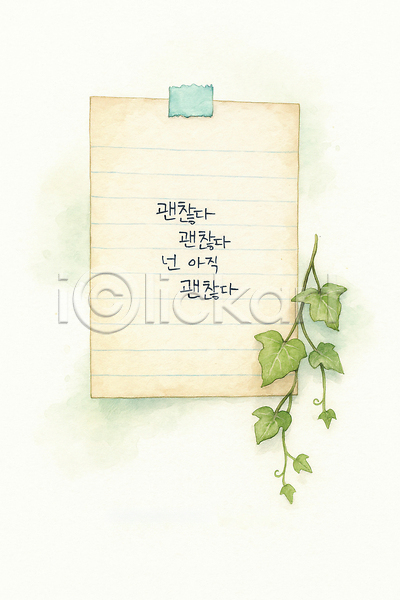 괜찮다
괜찮다
넌 아직
괜찮다
iⓒlickart